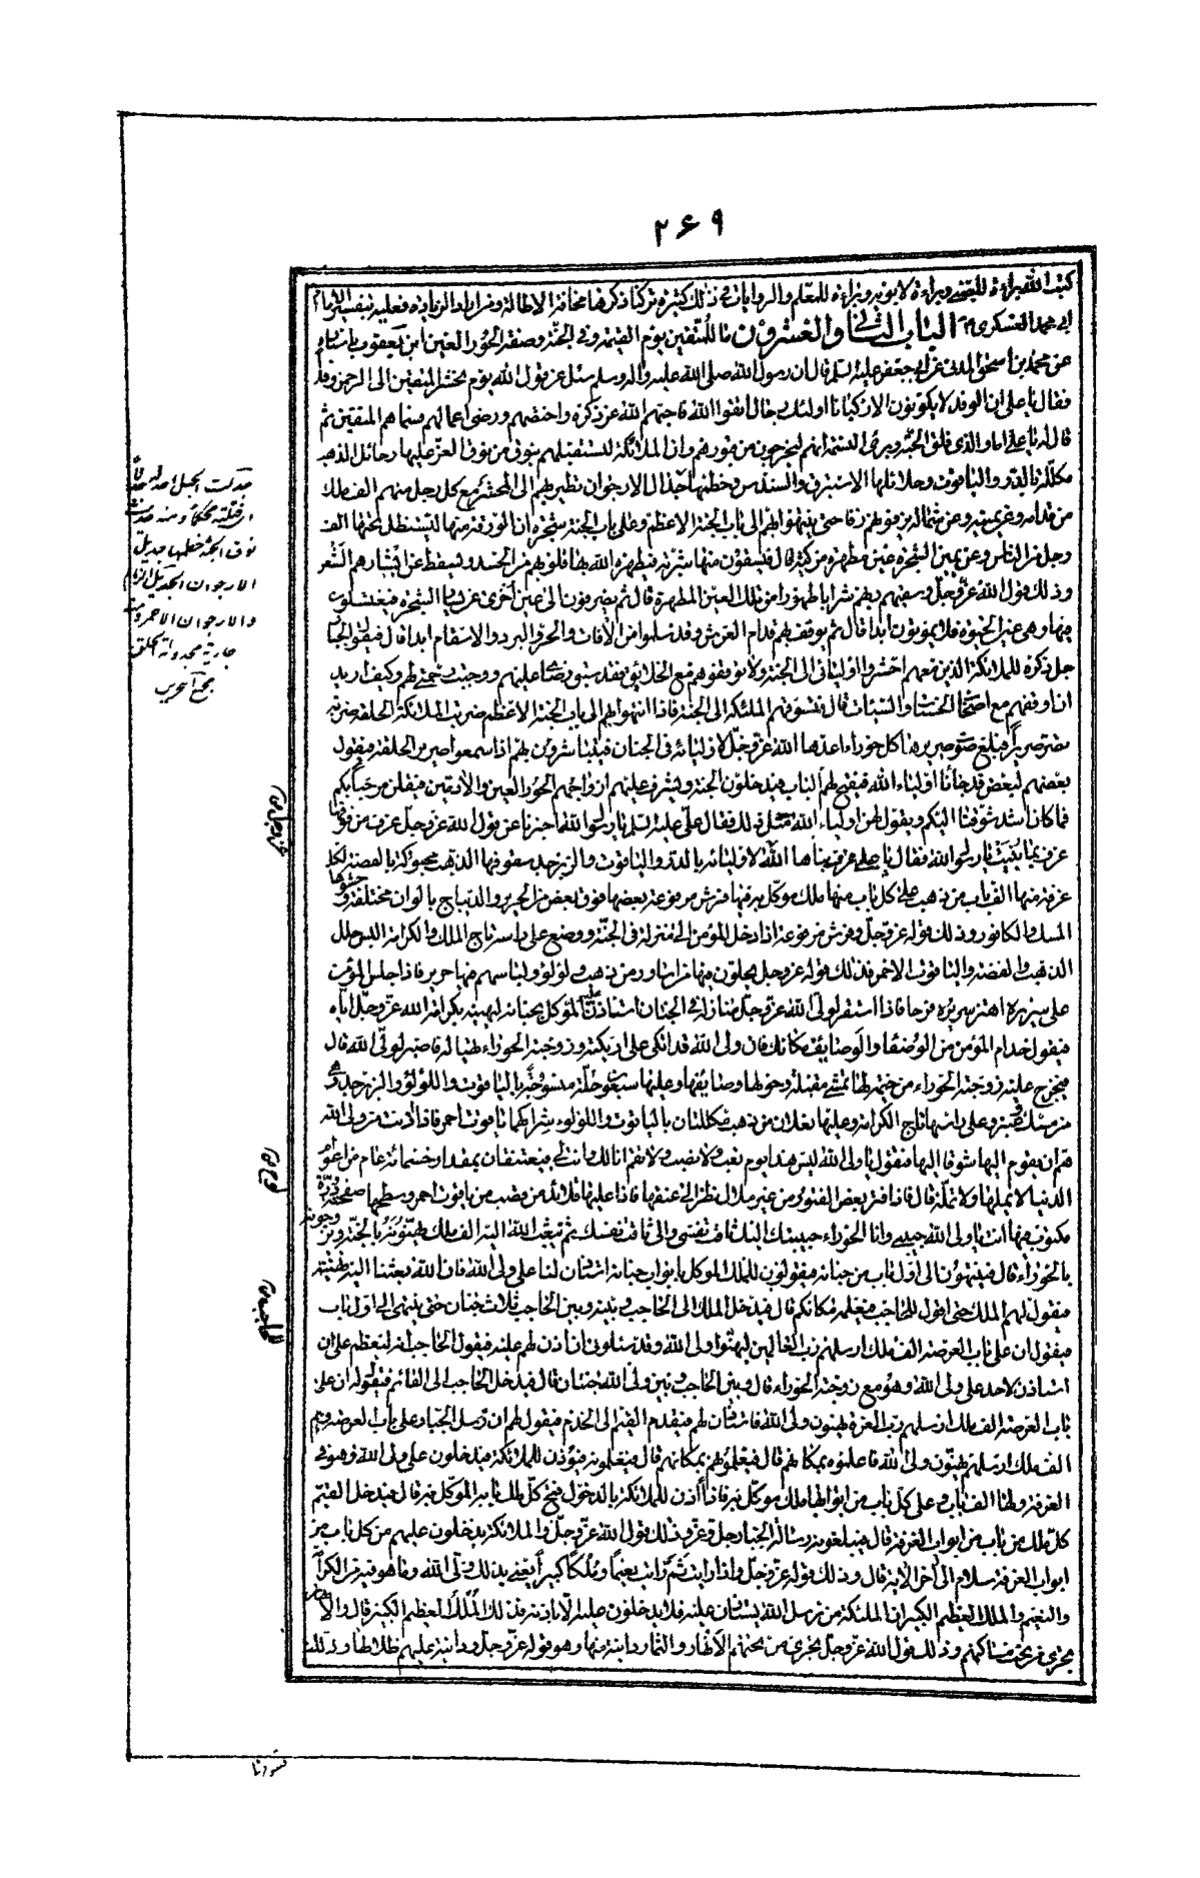 ۲۶۹
كتب الله براءة للصبي وبراءة لابويه وبراءة للمعلم والروايات في ذلك كثيرة تركنا ذكرها مخافة الاطالة ومن اراد الزيادة فعليه بتفسير الامام
ابي محمد العسكري الباب الثاني والعشرون ما للمتقين يوم القيمة وفي الجنة وصفة الحور العين ابن يعقوب باسناده
عن محمد بن اسحق المدني عن ابي جعفر عليه السلم قال ان رسول الله صلى الله عليه واله وسلم سئل عن قول الله يوم نحشر المتقين الى الرحمن وفدا
فقال يا علي ان الوفد لا يكونون الا ركبانا اولئك رجال اتقوا الله فاحبهم الله عز ذكره واختصهم ورضي اعمالهم فسماهم المتقين ثم
قال له يا علي اما والذي فلق الحبة وبرئ النسمة انهم ليخرجون من قبورهم وان الملائكة لتستقبلهم بنوق من نوق العز عليها رحائل الذهب
مكللة بالدر والياقوت وجلائلها الاستبرق والسندس وخطمها جدل الارجوان تطير بهم الى المحشر مع كل رجل منهم الف ملك
من قدامه وعن يمينه وعن شماله يزفونهم زفا حتى ينتهوا بهم الى باب الجنة الاعظم وعلى باب الجنة شجرة ان الورقة منها ليستظل تحتها الف
رجل من الناس وعن يمين الشجرة عين مطهرة مزكية قال فيسقون منها شربة فيطهر الله بها قلوبهم من الحسد ويسقط عن ابشارهم الشعر
وذلك قول الله عز وجل وسقيهم ربهم شرابا طهورا من تلك العين المطهرة قال ثم يصرفون الى عين اخرى عن يسار الشجرة فيغتسلون
فيها وهي عين الحيوة فلا يموتون ابدا قال ثم يوقف بهم قدام العرش وقد سلموا من الافات والاسقام والحر والبرد ابدا قال فيقول الجبار
جل ذكره للملائكة الذين معهم احشروا اوليائى الى الجنة ولا توقفوهم مع الخلائق فقد سبق رضائي عليهم ووجبت رحمتي لهم وكيف اريد
ان اوقفهم مع اصحاب الحسنات والسيئات قال فتسوقهم الملئكة الى الجنة فاذا انتهوا بهم الى باب الجنة الاعظم ضرب الملائكة الحلقة ضربة
فتصر صريرا فيبلغ صوت صريرها كل حوراء اعدها الله عز وجل لاوليائه في الجنان فيتباشرون بهم اذا سمعوا صرير الحلقة فيقول
بعضهم لبعض قد جاءنا اولياء الله فيفتح لهم الباب فيدخلون الجنة ويشرف عليهم ازواجهم الحور العين والادميين فيقلن مرحبا بكم
فما كان اشد شوقنا اليكم ويقول لهن اولياء الله مثل ذلك فقال علي عليه السلم يا رسول الله اخبرنا عن قول الله عز وجل غرف من فوقها
غرف بما بنيت يا رسول الله فقال يا علي غرف بناها الله لاوليائه بالدر والياقوت والزبرجد سقوفها الذهب محبوكة بالفضة لكل
غرفة منها الف باب من ذهب على كل باب منها ملك موكل به فيها فرش مرفوعة بعضها فوق بعض من الحرير والديباج بالوان مختلفة وحشوها
المسك والكافور وذلك قوله عز وجل وفرش مرفوعة اذا دخل المؤمن الى منزله في الجنة ووضع على راسه تاج الملك والكرامة البس حلل
الذهب والفضة والياقوت الاحمر فذلك قوله عز وجل يحلون فيها من اساور من ذهب ولؤلؤ ولباسهم فيها حرير فاذا جلس المؤمن
على سريره اهتز سريره فرحا فاذا استقر لولي الله عز وجل منازله في الجنان استاذن عليه الموكل بجنانه ليهنيه بكرامة الله عز وجل اياه
فيقول خدام المؤمن من الوصفاء والوصائف مكانك فان ولي الله قد اتكى على اريكته وزوجته الحوراء تهيا له فاصبر لولي الله قال
فيخرج عليه زوجته الحوراء من خيمة لها تمشي مقبلة وحولها وصائفها وعليها سبعون حلة منسوجة بالياقوت واللؤلؤ والزبرجد وهي
من مسك وعنبر وعلى راسها تاج الكرامة وعليها نعلان من ذهب مكللتان بالياقوت واللؤلؤ شراكهما ياقوت احمر فاذا دنت من ولي الله
فهم ان يقوم اليها شوقا اليها فتقول يا ولي الله ليس هذا يوم تعب ولا نصب ولا تقم انا لك وانت لي فيعتنقان بمقدار خمسمائة عام من اعوام
الدنيا لا يملها ولا تمله قال فاذا فتر بعض الفتور من غير ملال نظر الى عنقها فاذا عليها قلائد من قصب من ياقوت احمر وسطها صفحته درة
مكتوب فيها انت يا ولي الله حبيبي وانا الحوراء حبيبتك اليك تاقت نفسي والي تاقت نفسك ثم يبعث الله اليه الف ملك يهنؤنه بالجنة ويزوجونه
بالحوراء قال فينتهون الى اول باب من جنانه فيقولون للملك الموكل بابواب جنانه استاذن لنا على ولي الله فان الله بعثنا اليه نهنيه
فيقول لهم الملك حتى اقول للحاجب فيعلمه مكانكم قال فيدخل الملك الى الحاجب وبينه وبين الحاجب ثلاث جنان حتى ينتهي الى اول باب
فيقول ان على باب العرصة الف ملك ارسلهم رب العالمين ليهنوا ولي الله وقد سئلوني ان اذن لهم عليه فيقول الحاجب انه ليعظم علي ان
استاذن لاحد على ولي الله وهو مع زوجته الحوراء قال وبين الحاجب وبين ولي الله جنتان قال فيدخل الحاجب الى القائم فيقول له ان على
باب العرصة الف ملك ارسلهم رب العزة يهنون ولي الله فاستاذن لهم فيتقدم القيم الى الخدم فيقول لهم ان رسل الجبار على باب العرصة وهم
الف ملك ارسلهم يهنؤن ولي الله فاعلموه بمكانهم قال فيعلموهم بمكانهم قال فيعلمونه فيؤذن للملائكة فيدخلون على ولي الله وهو في
الغرفة ولها الف باب وعلى كل باب من ابوابها ملك موكل به فاذا أذن للملائكة بالدخول فتح كل ملك بابه الموكل به قال فيدخل القيم
كل ملك من باب من ابواب الغرفة قال فيبلغونه رسالة الجبار جل وعز وذلك قول الله عز وجل والملائكة يدخلون عليهم من كل باب من
ابواب الغرفة سلام الى آخر الاية قال وذلك قوله عز وجل واذا رايت ثم رايت نعيما وملكا كبيرا يعني بذلك ولي الله وما هو فيه من الكرامة
والنعيم والملك العظيم الكبير ان الملئكة من رسل الله يستاذن عليه فلا يدخلون عليه الا باذنه فذلك الملك العظيم الكبير قال والانهار
تجري من تحت مساكنهم وذلك قول الله عز وجل تجري من تحتهم الانهار والثمار دانية منها وهو قوله عز وجل ودانية عليهم ظلالها وذللت
جدلت الحبل اجدله جدلا
اى فتلته محكما ومنه حديث
نوق الجنة خطمها جديل
الارجوان الجديل الزمام
والارجوان الاحمر ومنه
جارية مجدولة الخلق
مجمع البحرين